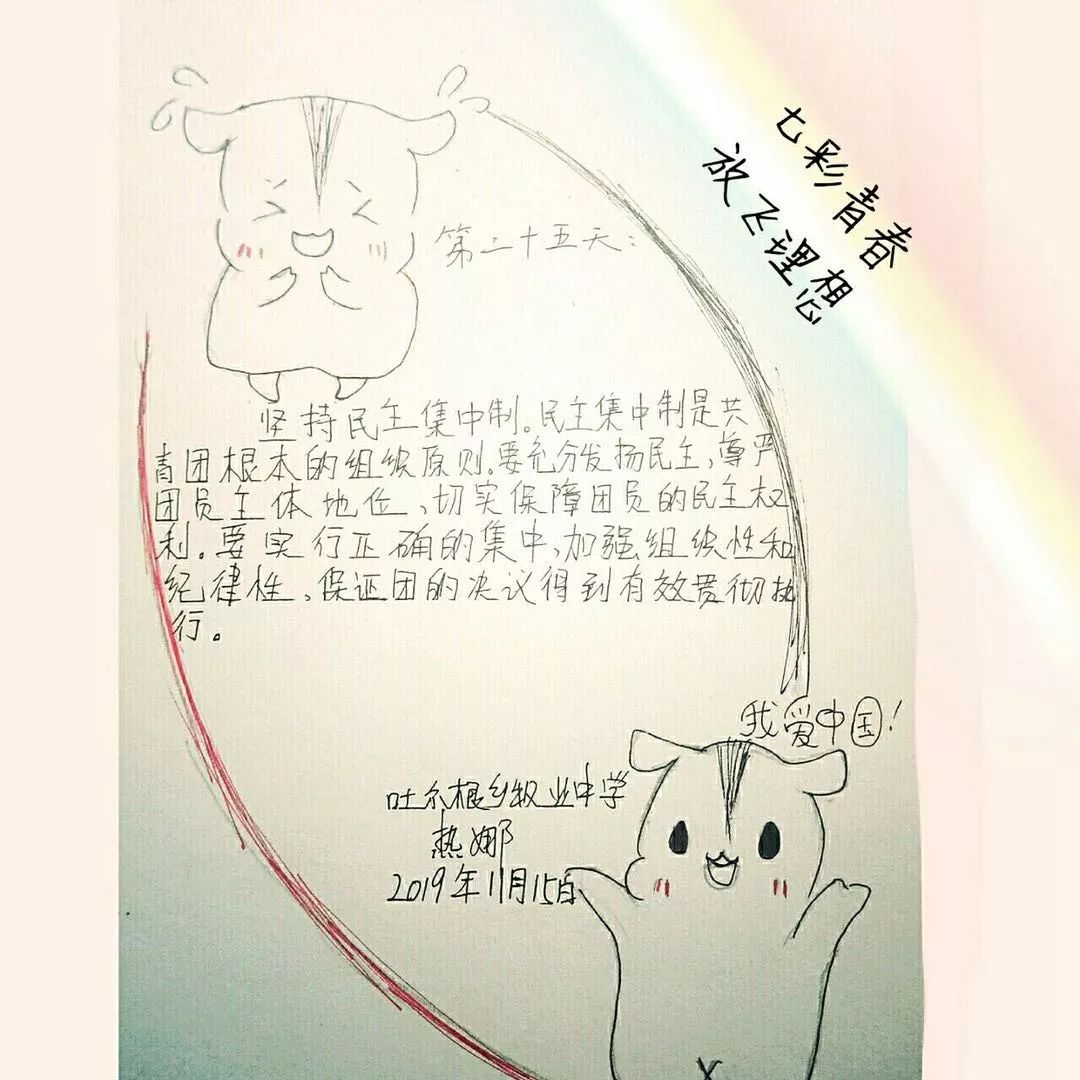 七彩青春
放飞理想
第二十五天:
坚持民主集中制。民主集中制是共
青团根本的组织原则。要充分发扬民主,尊严
团员主体地位、切实保障团员的民主权
利。要实行正确的集中,加强组织性和
纪律性、保证团的决议得到有效贯彻执
行。
我爱中国!
吐尔根乡牧业中学
热娜
2019年11月15日